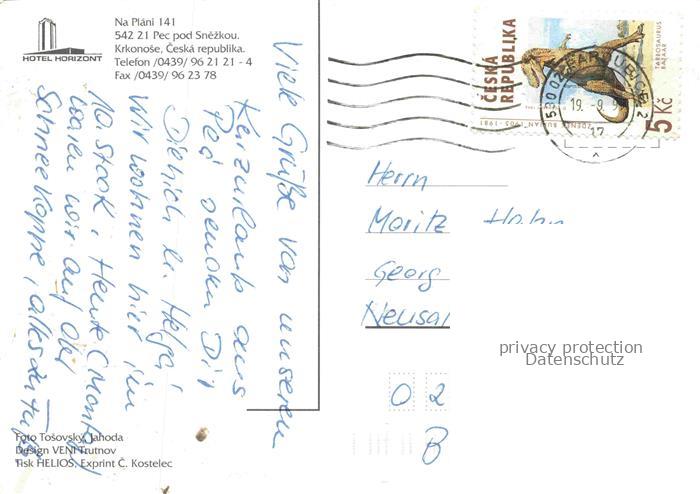 HOTEL HORIZONT
Na Pláni 141
542 21 Pec pod Sněžkou.
Krkonoše, Česká republika.
Telefon /0439/ 96 21 21 - 4
Fax /0439/ 96 23 78
Viele Grüße von unserem
Kurzurlaub aus
Pec senden Dir
Dietrich u. Helga
Wir wohnen hier im
10. Stock. Heute (Montag)
waren wir auf der
Schneekoppe, alles zu Fuß
Foto Tošovský, Jahoda
Design VENI Trutnov
Tisk HELIOS, Exprint Č. Kostelec
ČESKÁ
REPUBLIKA
TARBOSAURUS
BATAAR
ZDENĚK BURIAN 1905-1981
5 Kč
53002 PARDUBICE 2
19. -9. 9
17
Herrn
Moritz
Georg
Neusal
privacy protection
Datenschutz
0 2
B